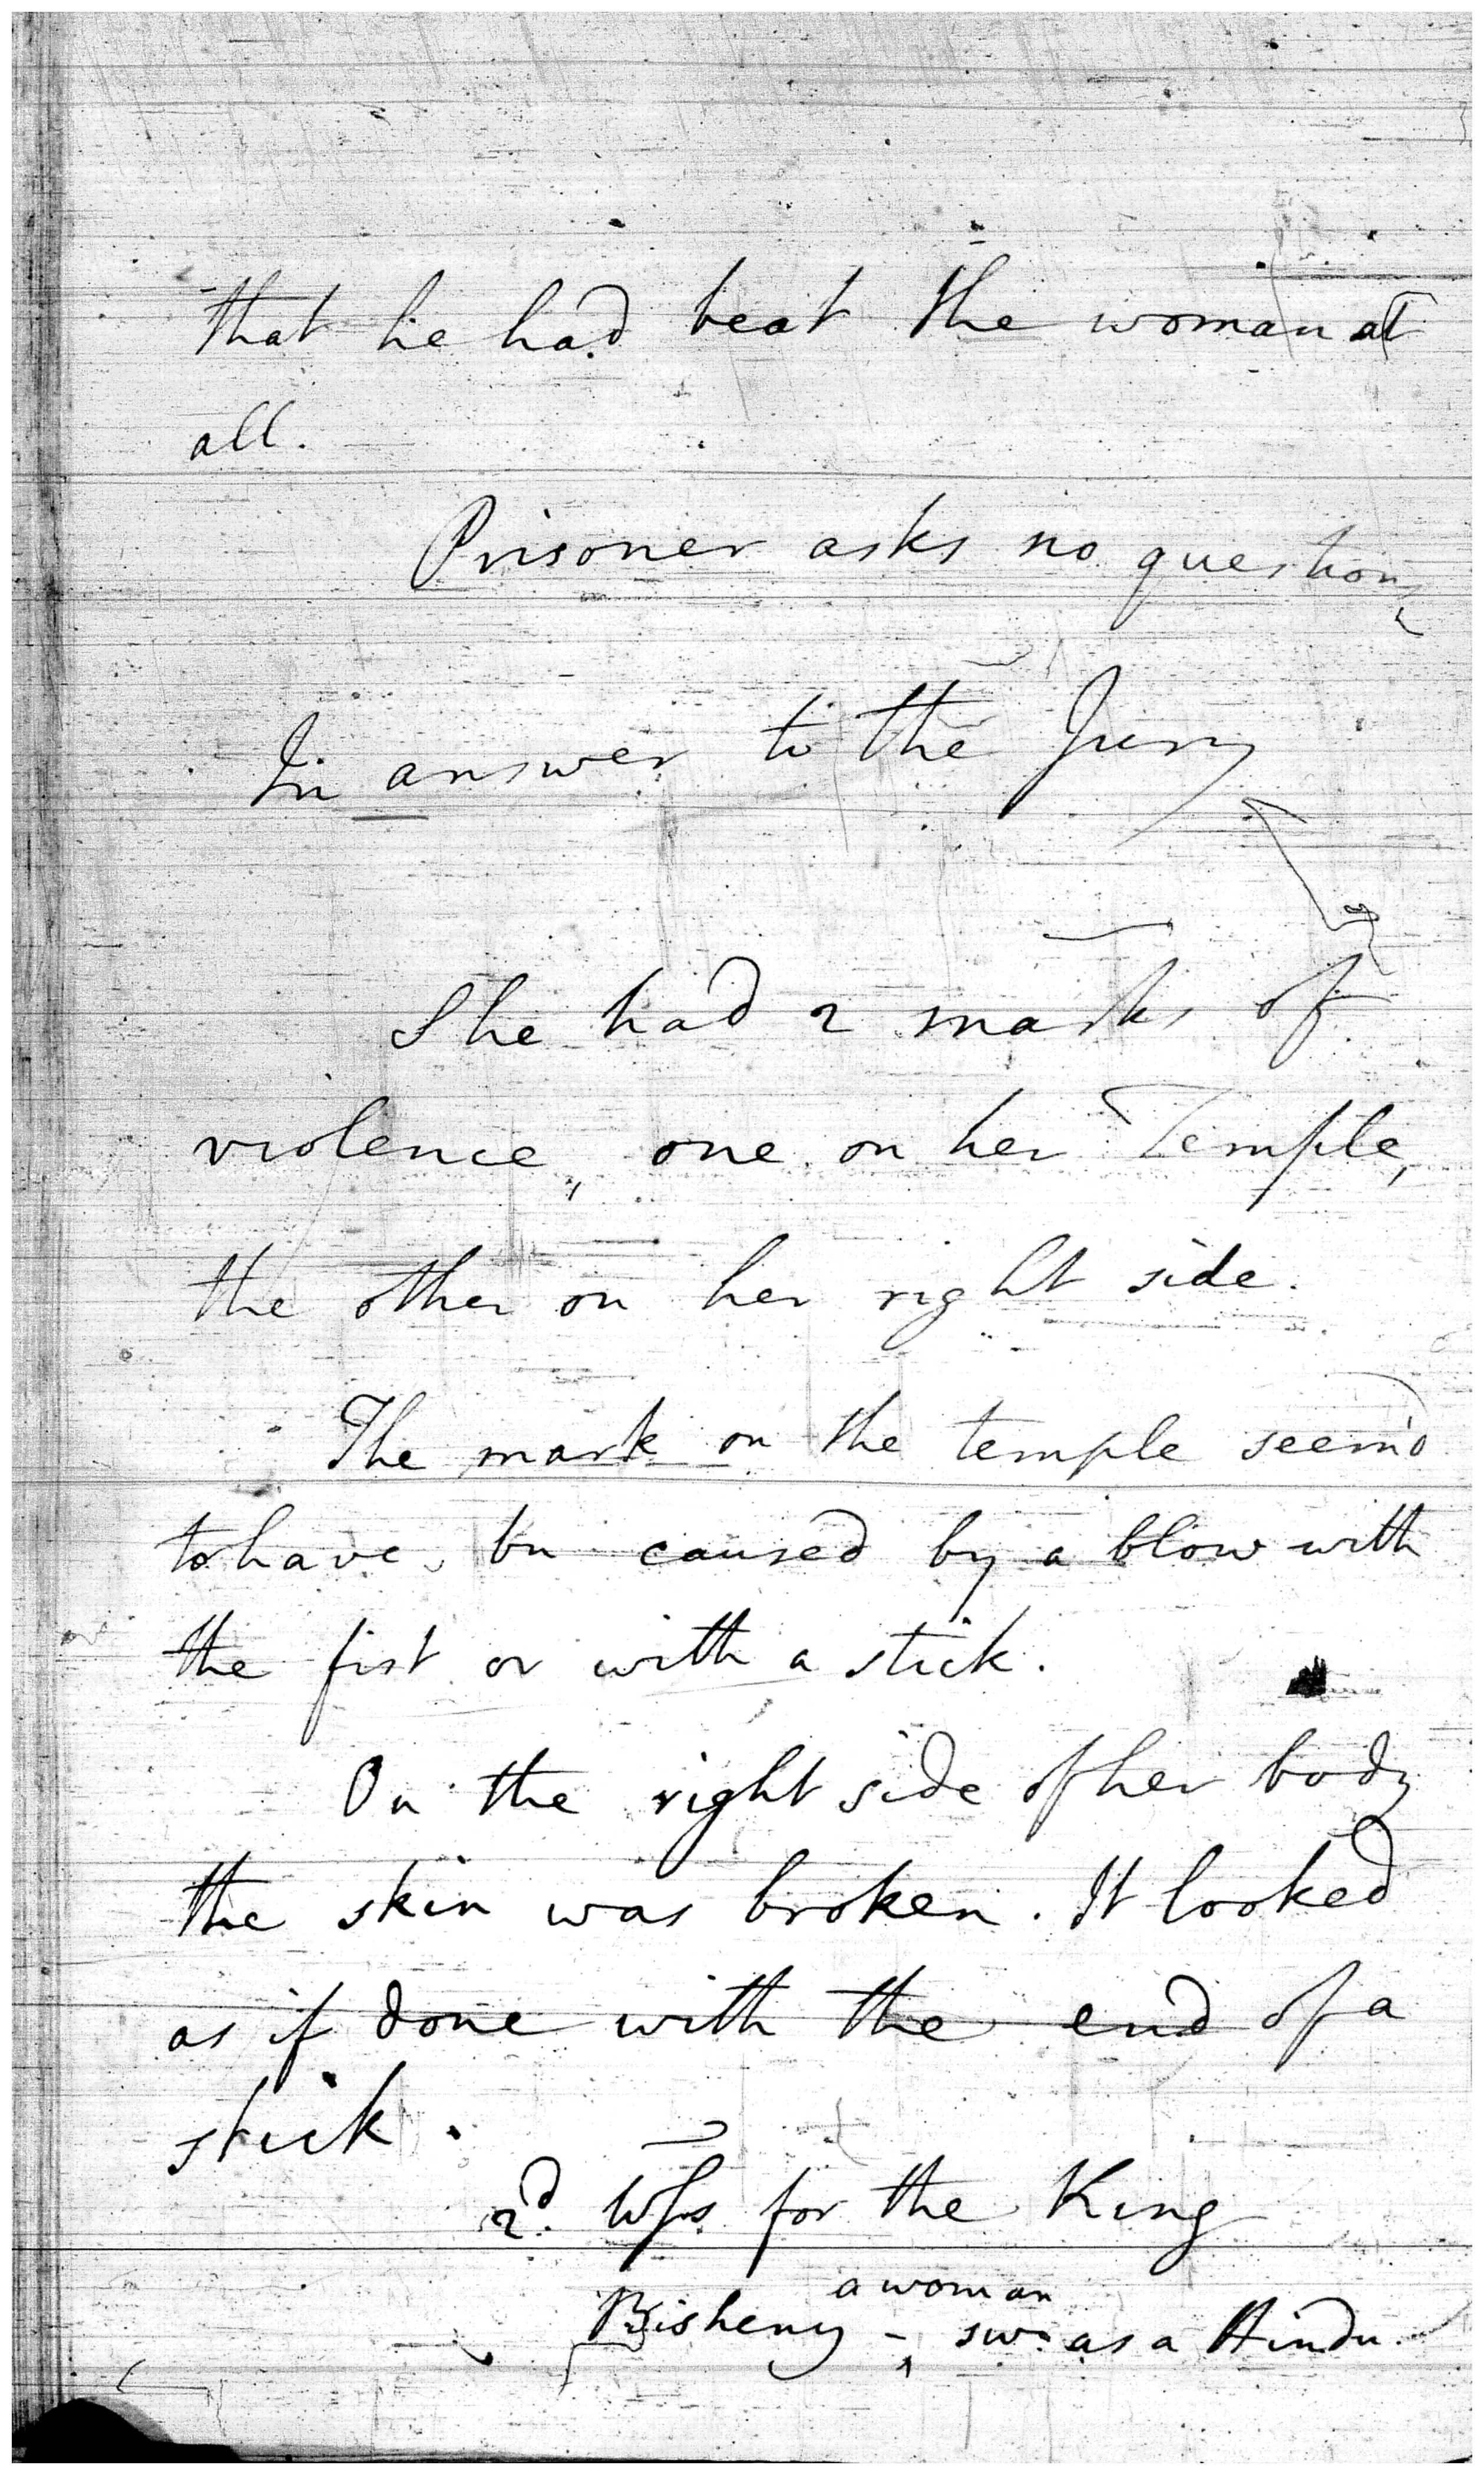 that he had beat the woman at
all.
Prisoner asks no questions
In answer to the Jury
She had 2 marks of
violence, one on her Temple,
the other on her right side.
The mark on the temple seem'd
to have bn caused by a blow with
the fist or with a stick.
On the right side of her body
the skin was broken. It looked
as if done with the end of a
stick.
2d. Wss for the King
a woman
Bisheny - ^ sw. as a Hindu.